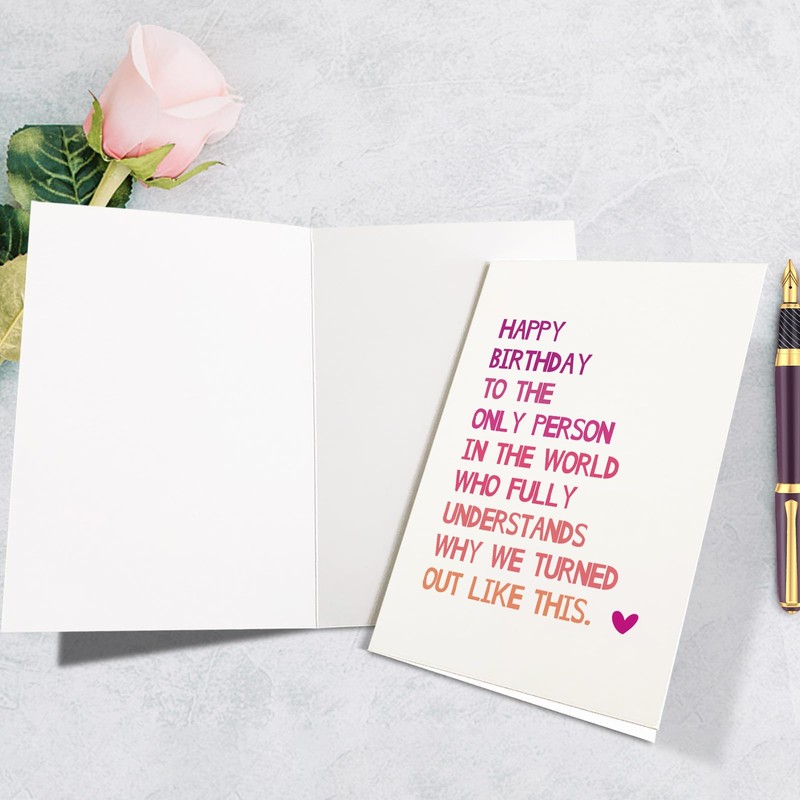 HAPPY
BIRTHDAY
TO THE
ONLY PERSON
IN THE WORLD
WHO FULLY
UNDERSTANDS
WHY WE TURNED
OUT LIKE THIS.